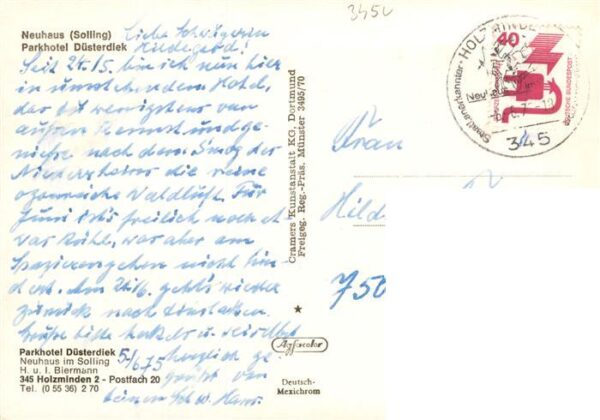 3450
Neuhaus (Solling)
Parkhotel Düsterdiek
Liebe Schwägerin
Hildegard!
Seit 24./5. bin ich nun hier
in umstehendem Hotel,
das ist wenigstens von
außen kennst und ge-
nieße nach dem Smog des
Niederrheins die reine
ozonreiche Waldluft. Für
Juni ist's freilich noch et
was kühl, was aber am
Spazierengehen nicht hin
dert. Am geht's wieder
zurück nach
Grüße bitte u.
5/6 75 herzlich ge-
grüßt von
Deinem Hans.
Parkhotel Düsterdiek
Neuhaus im Solling
H. u. I. Biermann
345 Holzminden 2 - Postfach 20
Tel. (0 55 36) 2 70
Cramers Kunstanstalt KG, Dortmund
Freigeg. Reg.-Präs. Münster 3495/70
Agfacolor
Deutsch-
Mexichrom
HOLZMINDEN
Staatl. anerkannter
Neuhaus im
345
40
DEUTSCHE BUNDESPOST
Frau
Hild
750